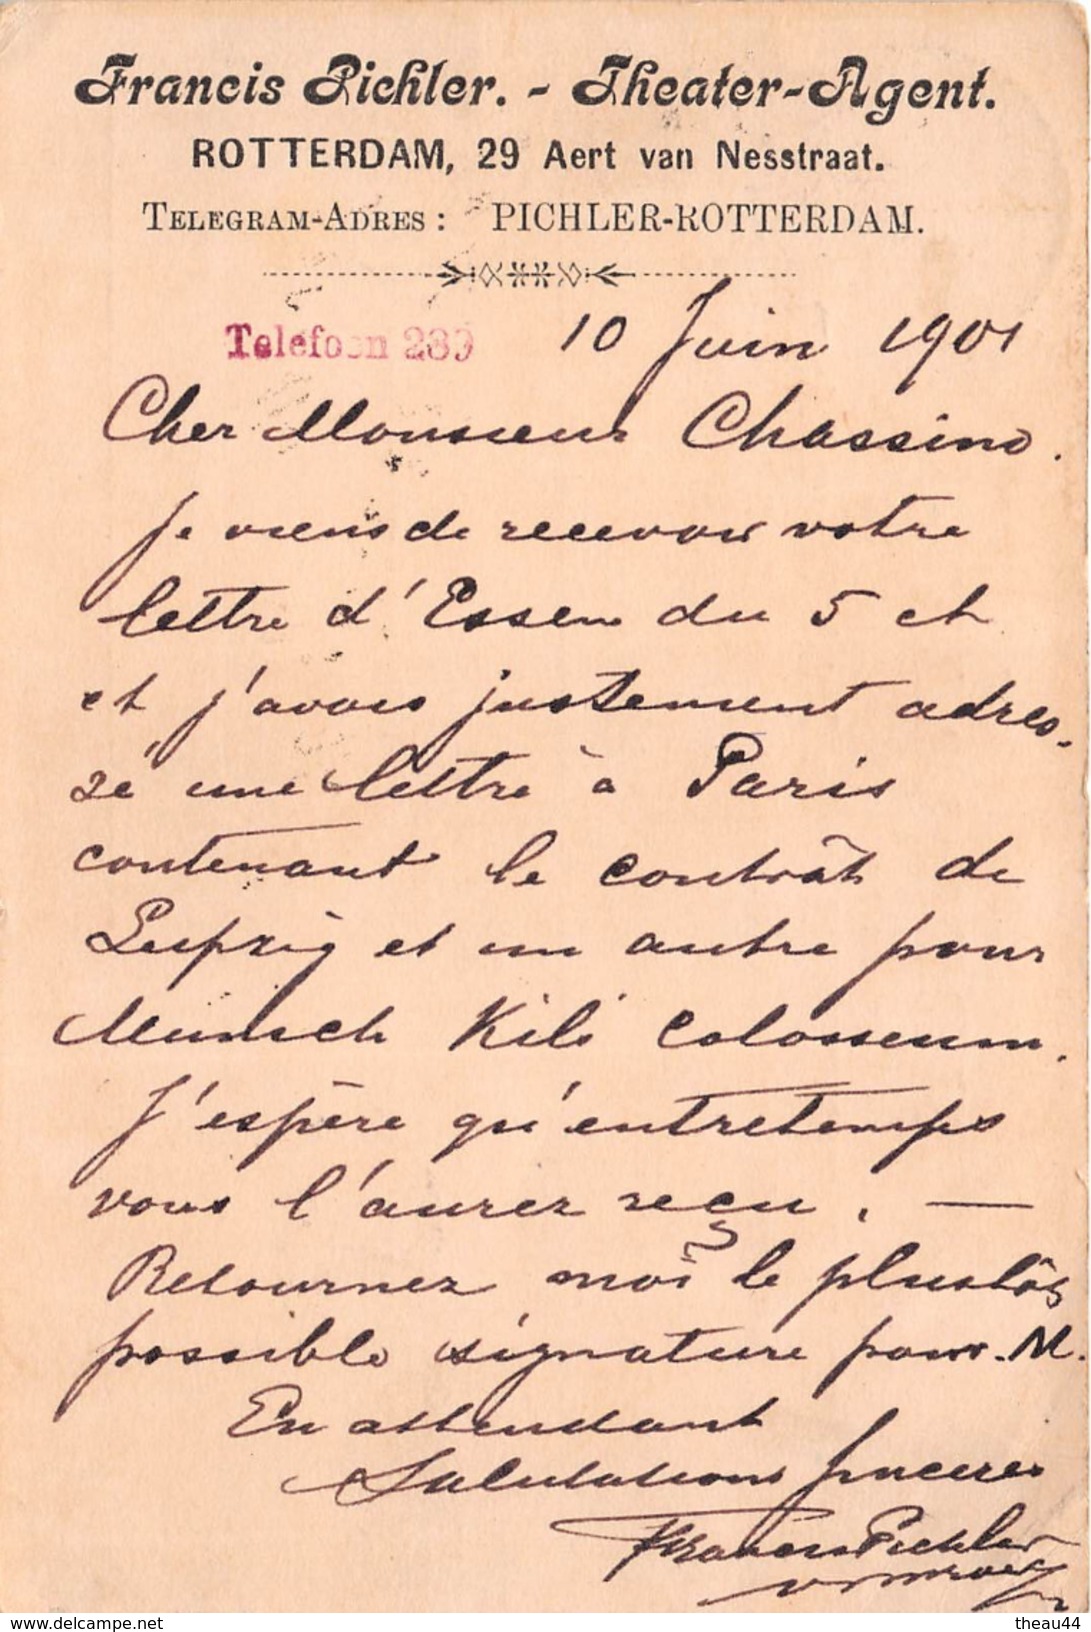 Francis Pichler. - Theater-Agent.
ROTTERDAM, 29 Aert van Nesstraat.
TELEGRAM-ADRES: PICHLER-ROTTERDAM.
Telefoon 289 10 Juin 1901
Cher Monsieur Chassino.
Je viens de recevoir votre
lettre d'Essen du 5 ct
et j'avais justement adres-
sé une lettre à Paris
contenant le contrât de
Leipzig et un autre pour
Munich Kils Colosseum.
J'espère qu'entretemps
vous l'aurez reçu. —
Retournez moi le plustôt
possible signature pour M.
En attendant
Salutations sinceres
Francis Pichler
www.delcampe.net
theau44